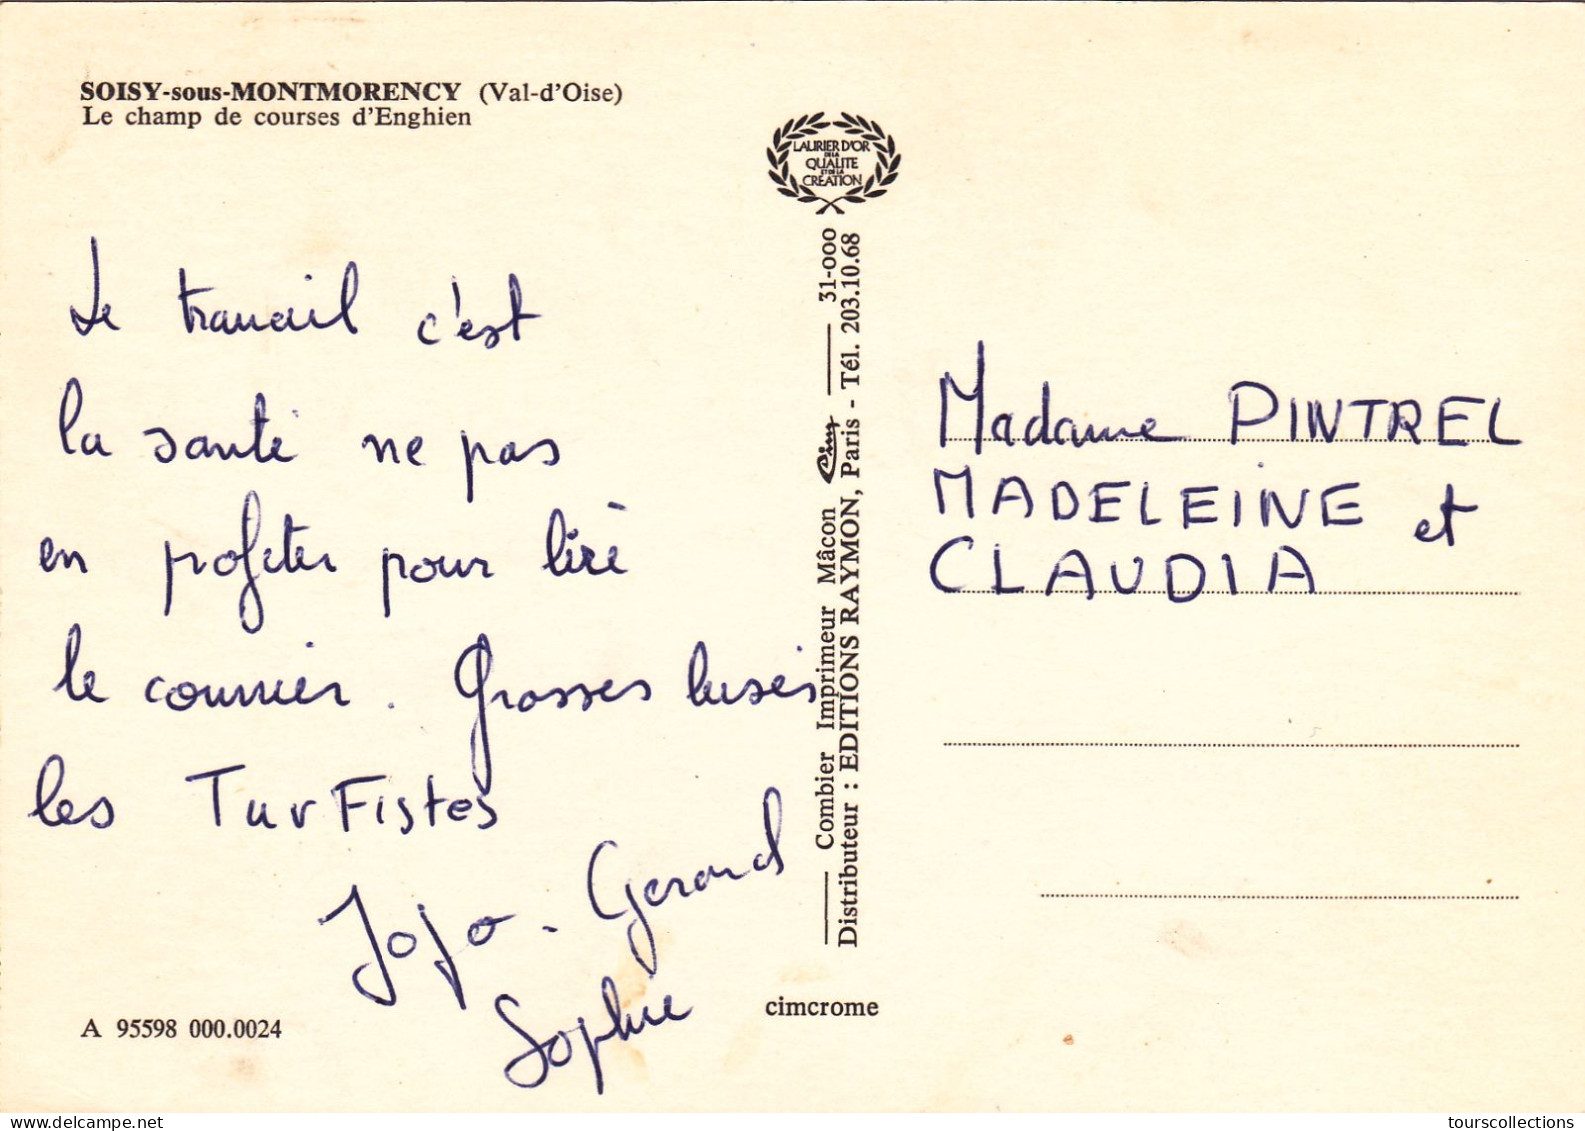 SOISY-sous-MONTMORENCY (Val-d'Oise)
Le champ de courses d'Enghien
LAURIER D'OR
DE LA
QUALITE
ET DE LA
CREATION
Le travail c'est
la santé ne pas
en profiter pour lire
le courrier. Grosses bises
les TurFistes
Jojo - Gerard
Sophie
A 95598 000.0024
Combier Imprimeur Mâcon Cim 31-000
Distributeur : EDITIONS RAYMON, Paris - Tél. 203.10.68
cimcrome
Madame PINTREL
MADELEINE et
CLAUDIA
www.delcampe.net
tourscollections